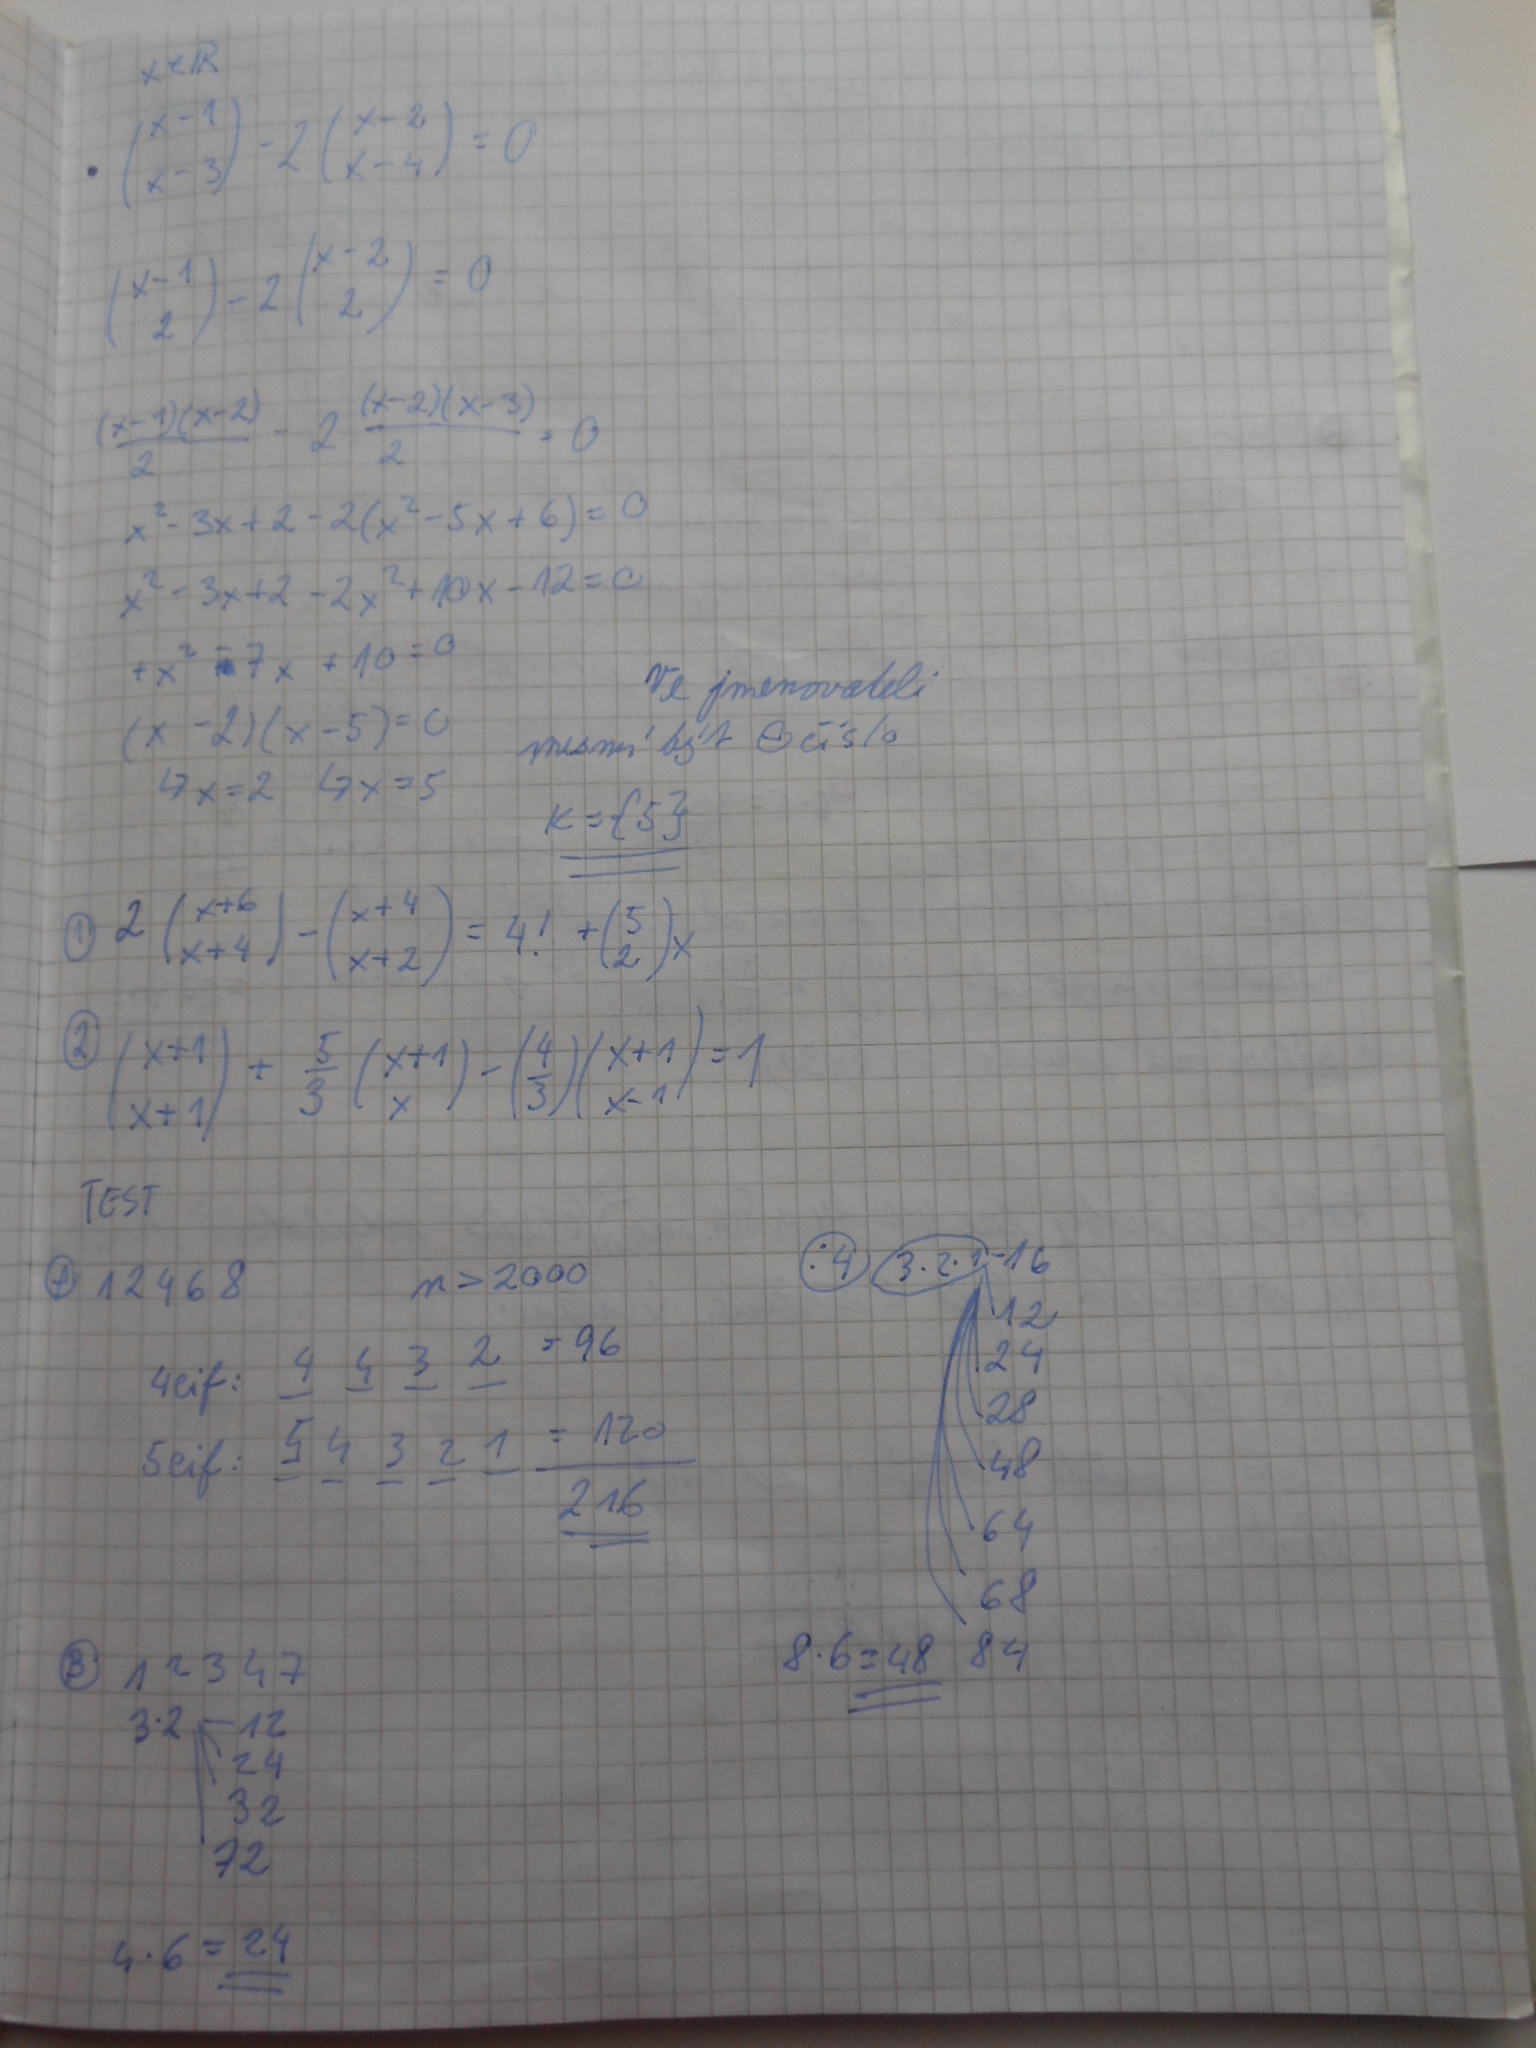 x∈ℝ
• (x-1 x-3) - 2 (x-2 x-4) = 0
(x-1 2) - 2 (x-2 2) = 0
(x-1)(x-2)/2 - 2 (x-2)(x-3)/2 = 0
x² - 3x + 2 - 2(x² - 5x + 6) = 0
x² - 3x + 2 - 2x² + 10x - 12 = 0
+x² - 7x + 10 = 0
(x - 2)(x - 5) = 0
↳x=2 ↳x=5
Ve jmenovateli
nesmí být ⊖ číslo
K = {5}
① 2 (x+6 x+4) - (x+4 x+2) = 4! + (5 2)x
② (x+1 x+1) + 5/3 (x+1 x) - (4/3)(x+1 x-1) = 1
TEST
Ⓐ 12468 n > 2000
4cif: 4 4 3 2 = 96
5cif: 5 4 3 2 1 = 120
216
:4 3·2·1 - 16
12
24
28
48
64
68
84
8·6=48
Ⓑ 12347
3·2 - 12
24
32
72
4·6 = 24